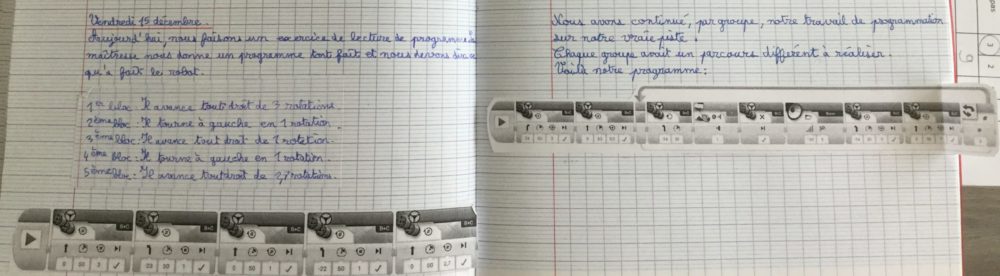 Vendredi 15 décembre.
Aujourd'hui, nous faisons un exercice de lecture de programme
maîtresse nous donne un programme tout fait et nous devons dire ce
qu'a fait le robot.
1er bloc : Il avance tout droit de 3 rotations.
2ème bloc : Il tourne à gauche en 1 rotation.
3ème bloc : Il avance tout droit de 1 rotation.
4ème bloc : Il tourne à gauche en 1 rotation.
5ème bloc : Il avance tout droit de 2,7 rotations.
B+C B+C B+C B+C B+C
0 50 3 -23 50 1 0 50 1 -22 50 1 0 50 2,7
Nous avons continué, par groupe, notre travail de programmation
sur notre vraie piste.
Chaque groupe avait un parcours différent à réaliser.
Voilà notre programme :